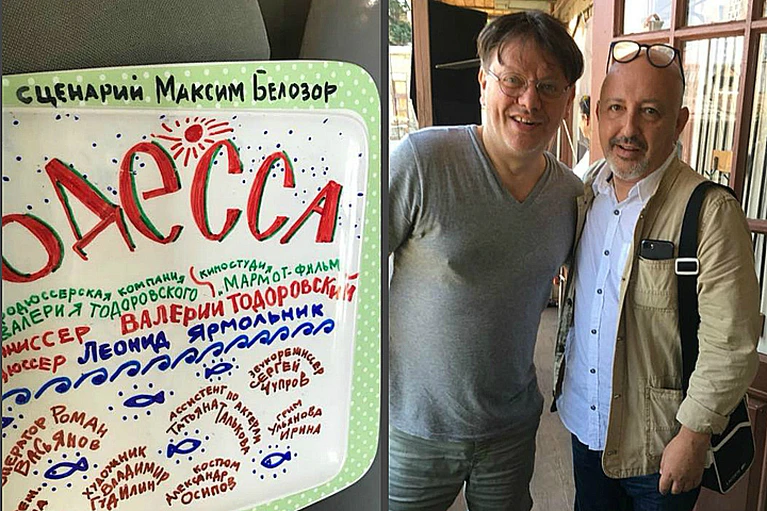 сценарий Максим Белозор
Одесса
одюссерская компания
Валерия Тодоровского
киностудия
Мармот-фильм
жиссер Валерий Тодоровский
дюссер Леонид Ярмольник
звукорежиссер
Сергей
Чупров
ассистент по актерам
Татьяна Талькова
грим
Ульянова
Ирина
оператор Роман
Васьянов
художник
Владимир
Гудилин
костюм
Александр
Осипов